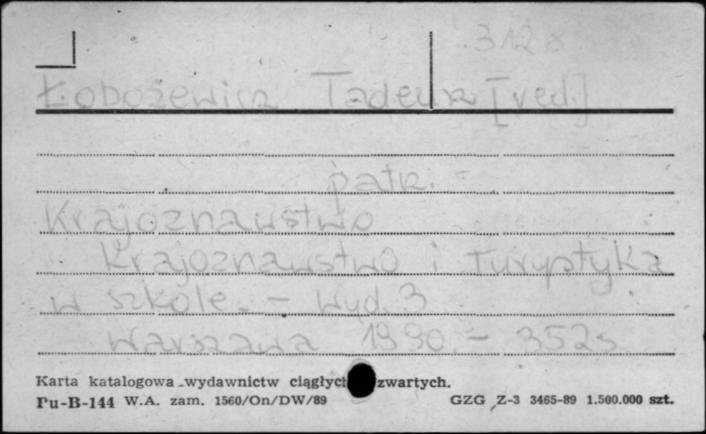 3120
Łobożewicz Tadeusz [red.]
patrz:
Krajoznawstwo
Krajoznawstwo i turystyka
w szkole. - Wyd. 3
Warszawa 1990. - 352 s
Karta katalogowa wydawnictw ciągłych zwartych.
Pu-B-144 W.A. zam. 1560/On/DW/89 GZG Z-3 3465-89 1.500.000 szt.